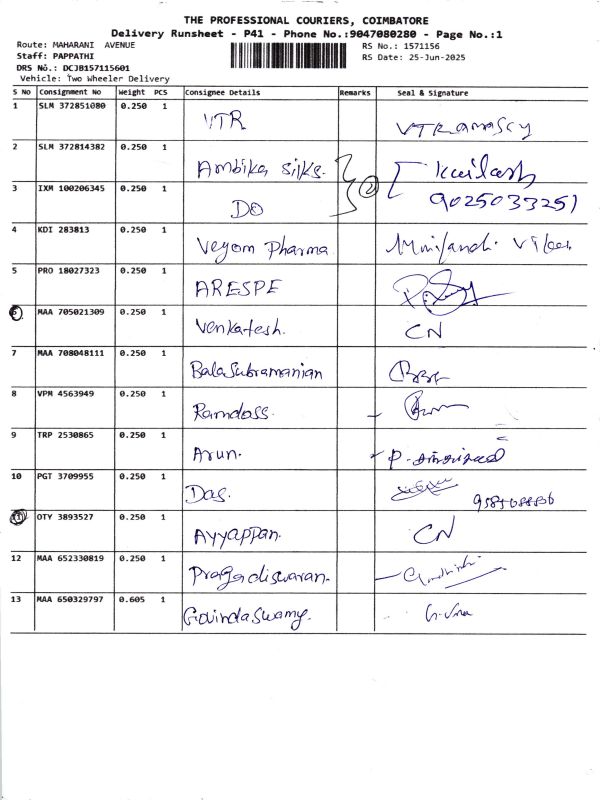 THE PROFESSIONAL COURIERS, COIMBATORE
Delivery Runsheet - P41 - Phone No.:9047080280 - Page No.:1
Route: MAHARANI AVENUE RS No.: 1571156
Staff: PAPPATHI RS Date: 25-Jun-2025
DRS No.: DCJB157115601
Vehicle: Two Wheeler Delivery
S No Consignment No Weight PCS Consignee Details Remarks Seal & Signature
1 SLM 372851080 0.250 1 VTR
2 SLM 372814382 0.250 1 Ambika Silks. Kailash
3 IXM 100206345 0.250 1 DO 2 9025033251
4 KDI 283813 0.250 1 Veyom Pharma
5 PRO 18027323 0.250 1 ARESPE
6 MAA 705021309 0.250 1 Venkatesh. CN
7 MAA 708048111 0.250 1 BalaSubramanian
8 VPM 4563949 0.250 1 Ramdoss.
9 TRP 2530865 0.250 1 Arun.
10 PGT 3709955 0.250 1 Das.
11 OTY 3893527 0.250 1 Ayyappan. CN
12 MAA 652330819 0.250 1 Pragadiswaran.
13 MAA 650329797 0.605 1 GovindaSwamy.